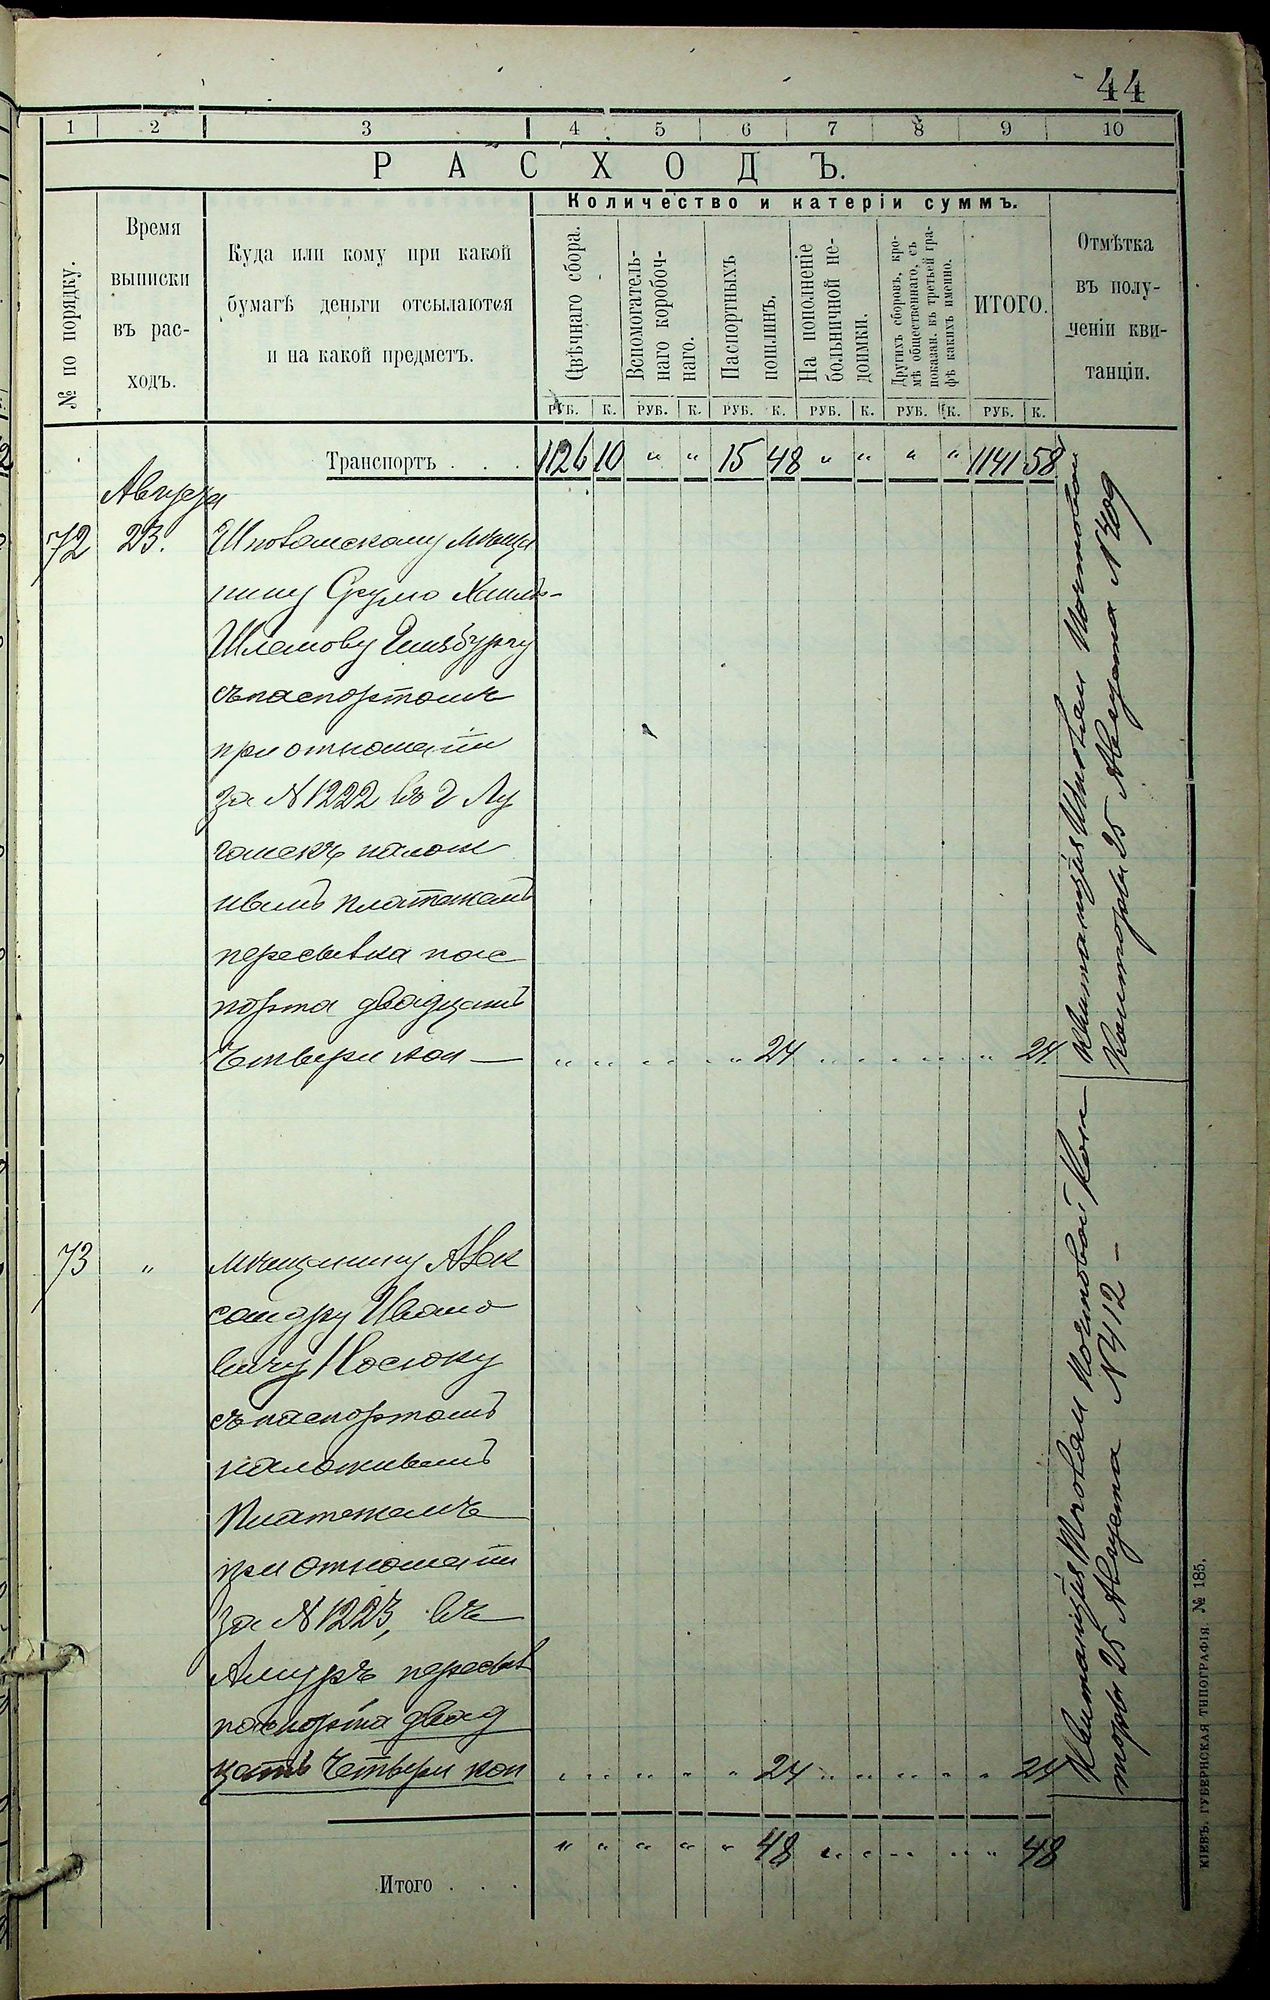 44
1 2 3 4 5 6 7 8 9 10
РАСХОДЪ.
Количество и катеріи суммъ.
№ по порядку.
Время
выписки
въ рас-
ходъ.
Куда или кому при какой
бумагѣ деньги отсылаются
и на какой предметъ.
Свѣчнаго сбора.
Вспомогатель-
наго коробоч-
наго.
Паспортныхъ
пошлинъ.
На пополненіе
больничной не-
доимки.
Другихъ сборовъ, кро-
мѣ общественнаго, съ
показан. въ третьей гра-
фѣ какихъ именно.
ИТОГО.
Отмѣтка
въ полу-
ченіи кви-
танціи.
РУБ. К. РУБ. К. РУБ. К. РУБ. К. РУБ. К. РУБ. К.
Транспортъ . . . 1126 10 " " 15 48 " " " " 1141 58
Августа
72 23. Шповскому мѣща
нину Сруло Хаимъ-
Шлемову Гинзбургу
съ паспортомъ
при отношеніи
за № 1222 въ г Лу
ганскъ налож
нымъ платежемъ
пересылка пас
порта двадцать
четыре коп — " " " " " 24 " " " " " 24
Квитанція Шполян Почтовой
Конторы 25 Августа № 409
73 " мѣщанину Алек
сандру Ивано
вичу Носюку
съ паспортомъ
наложнымъ
платежемъ
при отношеніи
за № 1223, въ
Амуръ пересыл
паспорта двад
цать четыре коп " " " " " 24 " " " " " 24
Квитанція Шполян Почтовой Кон
торы 25 Августа № 412 –
" " " " " 48 " " " " " 48
Итого . . .
КІЕВЪ. ГУБЕРНСКАЯ ТИПОГРАФІЯ. № 185.